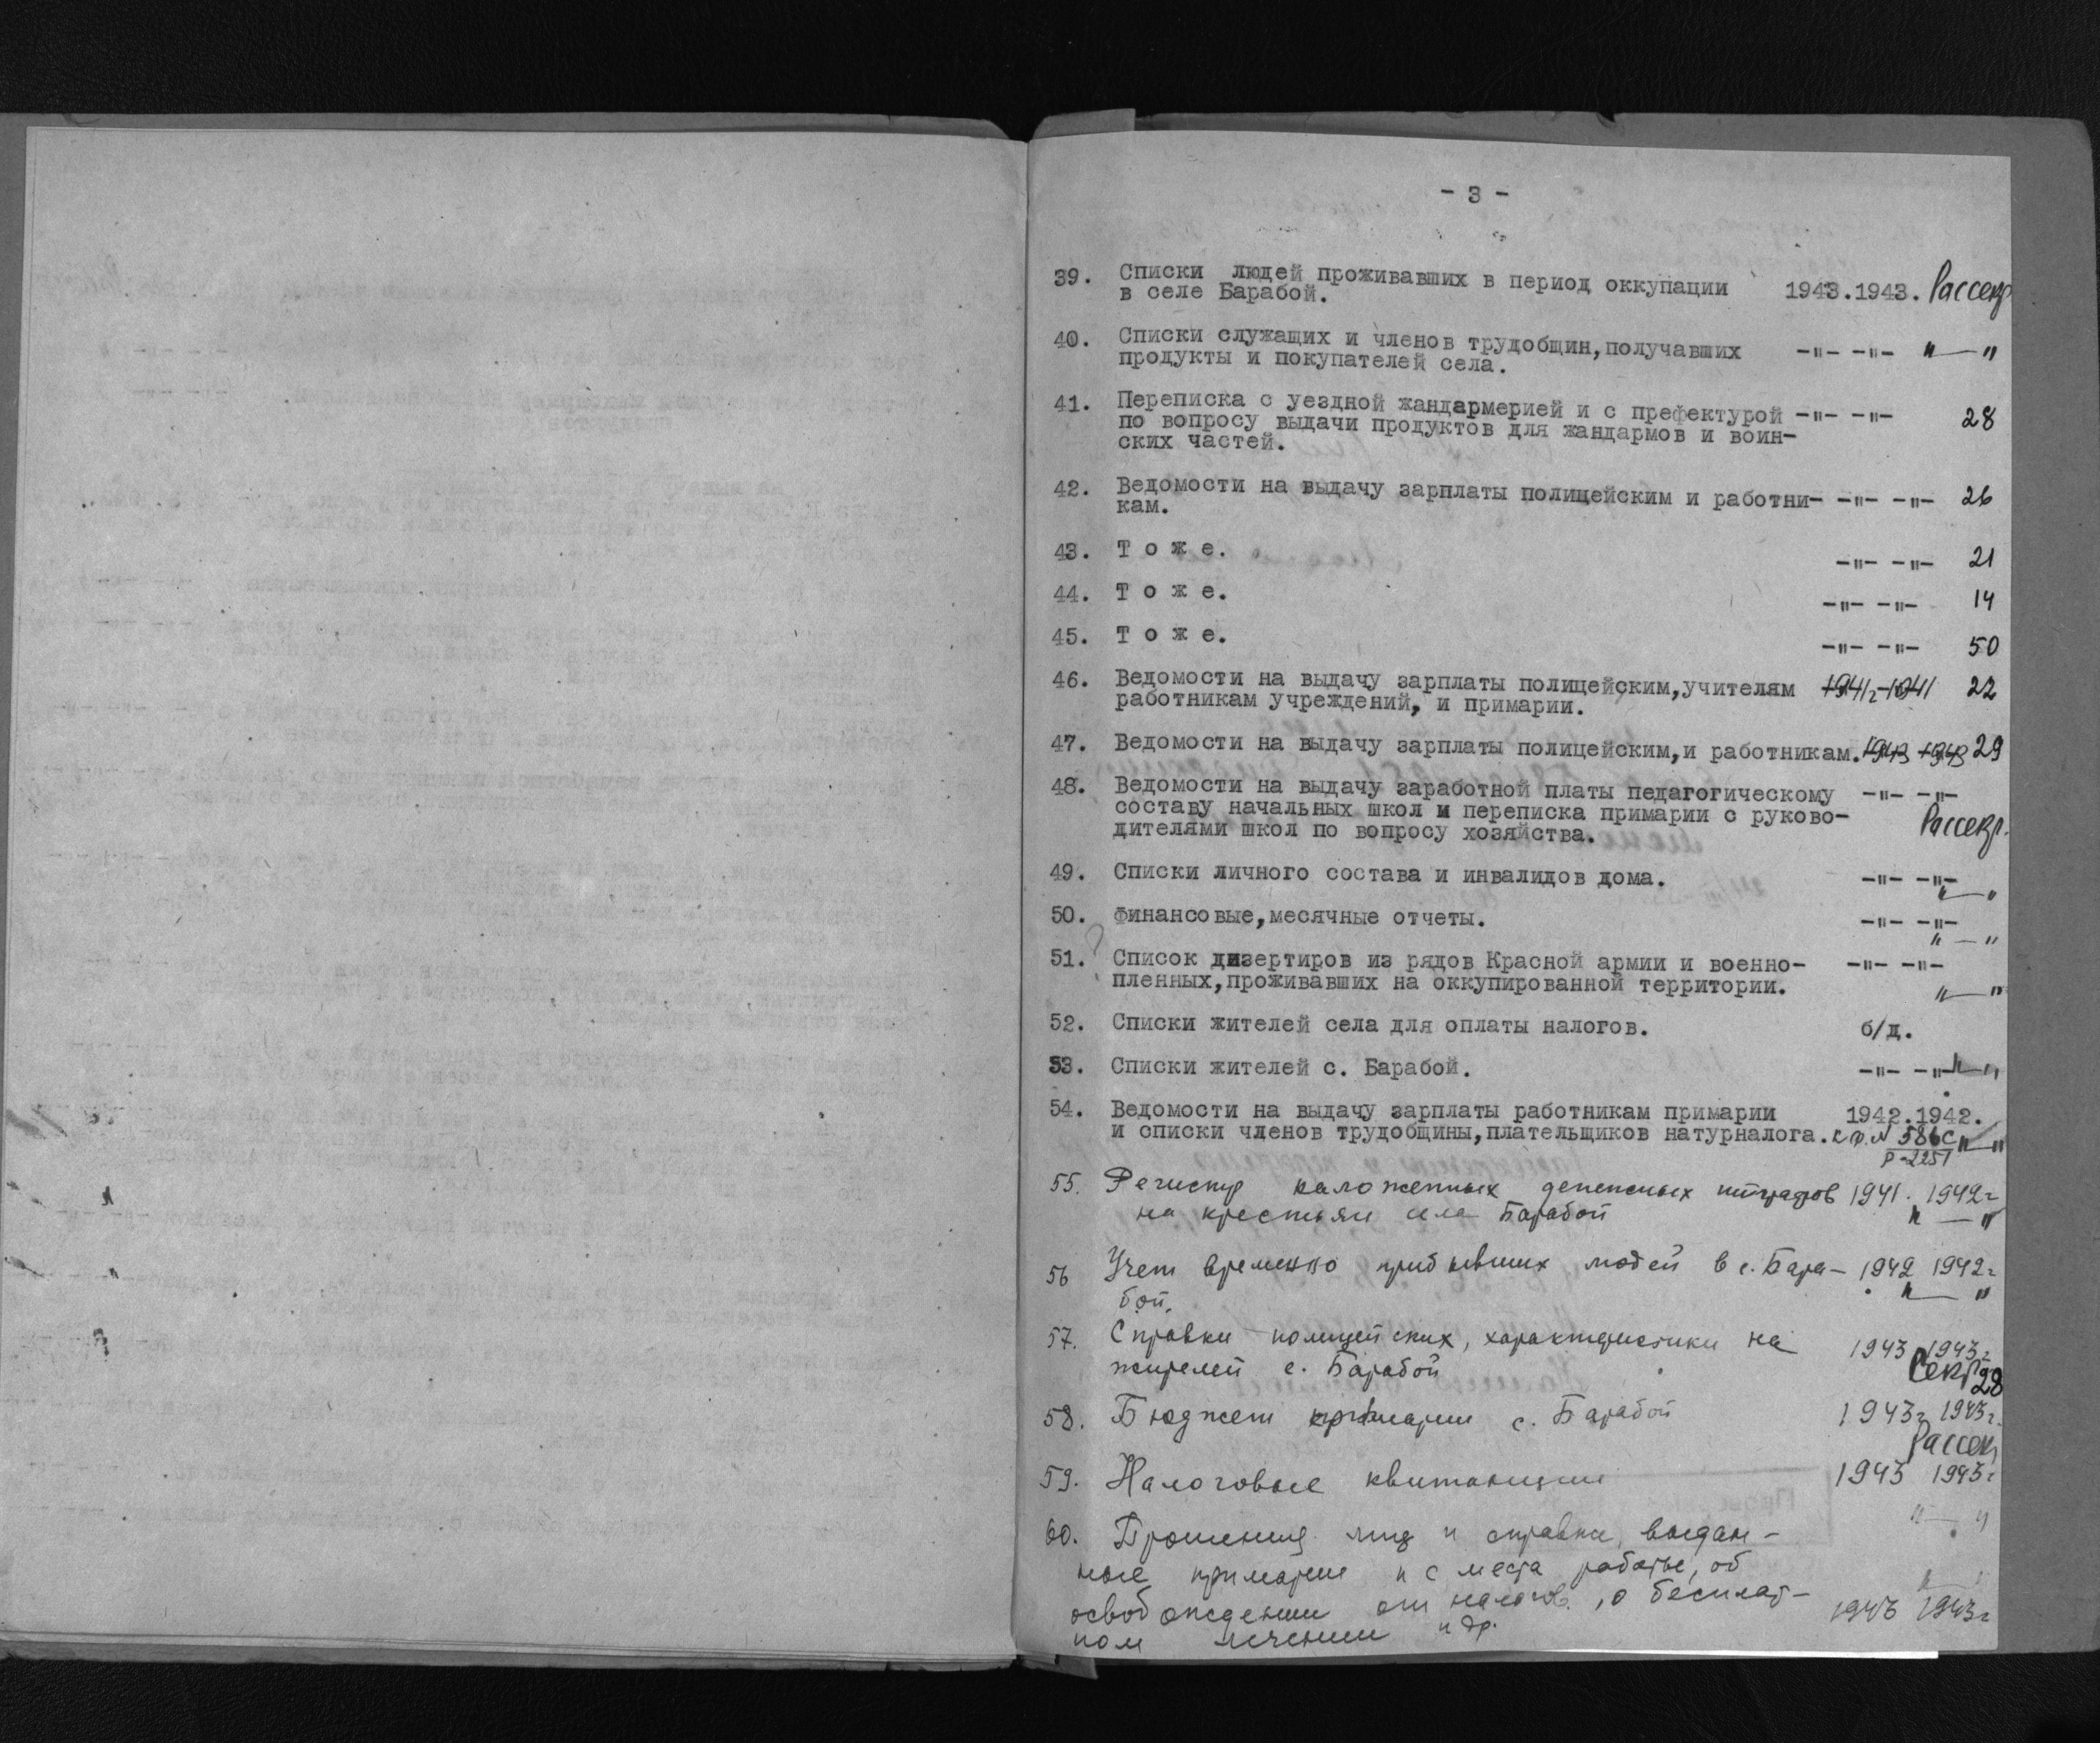 - 3 -
39. Списки людей проживавших в период оккупации 1943.1943. Рассекр
в селе Барабой.
40. Списки служащих и членов трудобщин,получавших -"- -"- "—"
продукты и покупателей села.
41. Переписка с уездной жандармерией и с префектурой -"- -"- 28
по вопросу выдачи продуктов для жандармов и воин-
ских частей.
42. Ведомости на выдачу зарплаты полицейским и работни- -"- -"- 26
кам.
43. Т о ж е. -"- -"- 21
44. Т о ж е. -"- -"- 14
45. Т о ж е. -"- -"- 50
46. Ведомости на выдачу зарплаты полицейским,учителям 1941г-1941 22
работникам учреждений, и примарии.
47. Ведомости на выдачу зарплаты полицейским,и работникам. 1943 1943 29
48. Ведомости на выдачу заработной платы педагогическому -"- -"-
составу начальных школ и переписка примарии с руково-
дителями школ по вопросу хозяйства. Рассекр.
49. Списки личного состава и инвалидов дома. -"- -"-
"—"
50. Финансовые,месячные отчеты. -"- -"-
"—"
51. Список дизертиров из рядов Красной армии и военно- -"- -"-
пленных,проживавших на оккупированной территории. "—"
52. Списки жителей села для оплаты налогов. б/д.
53. Списки жителей с. Барабой. -"- -"- "—"
54. Ведомости на выдачу зарплаты работникам примарии 1942.1942.
и списки членов трудобщины,плательщиков натурналога. к ф.№ 586с "—"
Р-2251
55. Регистр наложенных денежных штрафов 1941. 1942г
на крестьян села Барабой "—"
56 Учет временно прибывших людей в с. Бара- 1942 1942г
бой. "—"
57. Справки полицейских, характеристики на 1943 1943г
жителей с. Барабой Секр 28
58. Бюджет примарии с. Барабой 1943г 1943г.
Рассекр
59. Налоговые квитанции 1943 1943г
"—"
60. Прошения лиц и справки, выдан-
ные примарии и с места работы, об
освобождении от налогов, о бесплат- 1943 1943г
ном лечении и др.